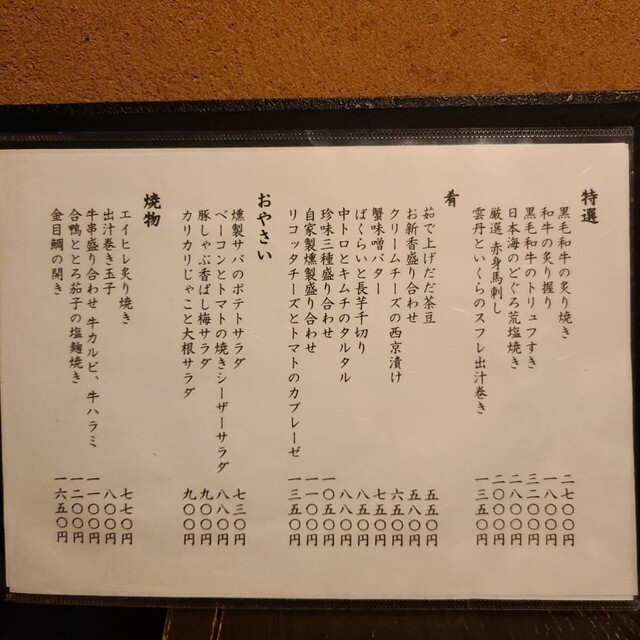 特選
黒毛和牛の炙り焼き 二七〇〇円
和牛の炙り握り 一八〇〇円
黒毛和牛のトリュフすき 三二〇〇円
日本海のどぐろ荒塩焼き 二八〇〇円
厳選 赤身馬刺し 二〇〇〇円
雲丹といくらのスフレ出汁巻き 一三五〇円
肴
茹で上げだだ茶豆 五五〇円
お新香盛り合わせ 五八〇円
クリームチーズの西京漬け 六五〇円
蟹味噌バター 七五〇円
ばくらいと長芋千切り 八五〇円
中トロとキムチのタルタル 八八〇円
珍味三種盛り合わせ 一〇五〇円
自家製燻製盛り合わせ 一一〇〇円
リコッタチーズとトマトのカプレーゼ 一三五〇円
おやさい
燻製サバのポテトサラダ 七三〇円
ベーコンとトマトの焼きシーザーサラダ 八八〇円
豚しゃぶ香ばし梅サラダ 九〇〇円
カリカリじゃこと大根サラダ 九〇〇円
焼物
エイヒレ炙り焼き 七七〇円
出汁巻き玉子 八〇〇円
牛串盛り合わせ 牛カルビ、牛ハラミ 一一〇〇円
合鴨ととろ茄子の塩麹焼き 一二〇〇円
金目鯛の開き 一六五〇円